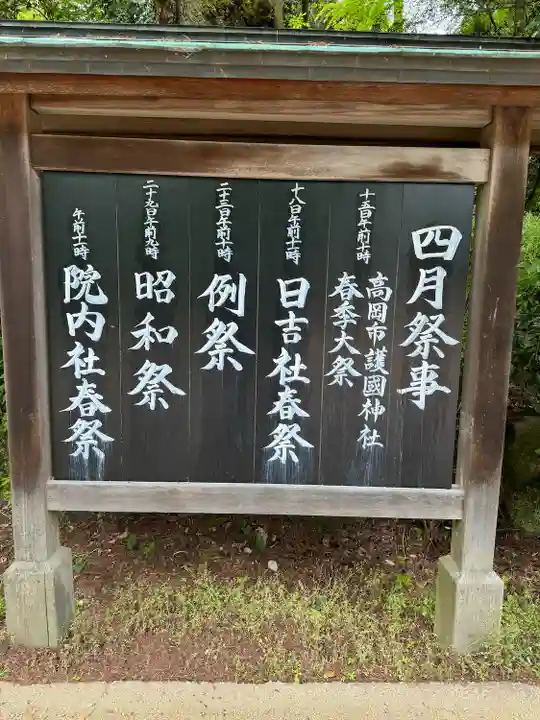 四月祭事
十五日午前十時
高岡市護國神社
春季大祭
十八日午前十時
日吉社春祭
二十三日午前十時
例祭
二十九日午前九時
昭和祭
午前十時
院内社春祭